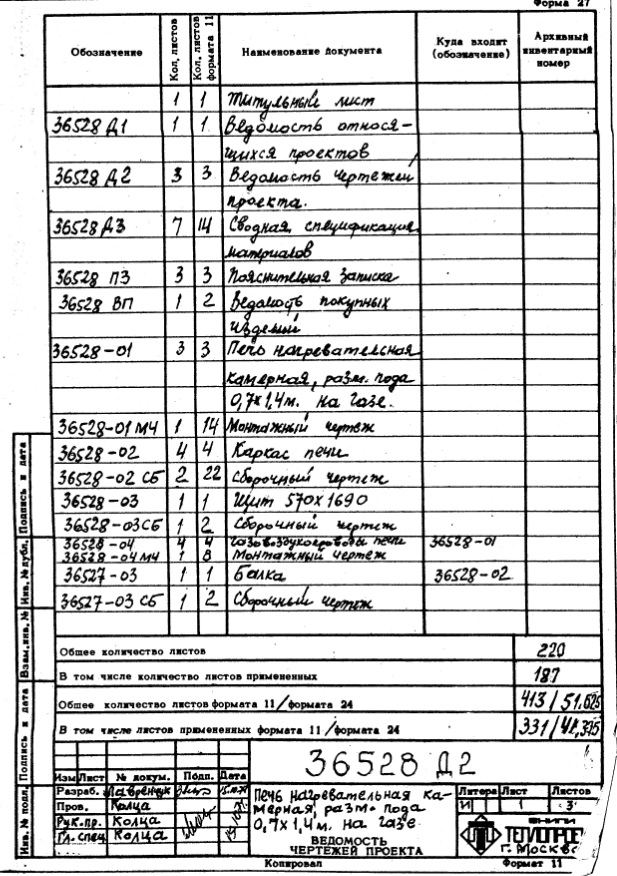 Форма 27
Обозначение Кол. листов Кол. листов формата 11 Наименование документа Куда входит (обозначение) Архивный инвентарный номер
1 1 Титульный лист
36528 Д1 1 1 Ведомость относя-
щихся проектов
36528 Д2 3 3 Ведомость чертежей
проекта.
36528 Д3 7 14 Сводная спецификация
материалов
36528 ПЗ 3 3 Пояснительная записка
36528 ВП 1 2 Ведомость покупных
изделий
36528-01 3 3 Печь нагревательная
камерная, разм. пода
0,7х1,4м. на газе.
36528-01 МЧ 1 14 Монтажный чертеж
36528-02 4 4 Каркас печи
36528-02 СБ 2 22 Сборочный чертеж
36528-03 1 1 Щит 570х1690
36528-03СБ 1 2 Сборочный чертеж
36528-04 4 4 Газовоздухопроводы печи 36528-01
36528-04МЧ 1 8 Монтажный чертеж
36527-03 1 1 Балка 36528-02
36527-03 СБ 1 2 Сборочный чертеж
Общее количество листов 220
В том числе количество листов примененных 187
Общее количество листов формата 11/формата 24 413/51,625
В том числе листов примененных формата 11/формата 24 331/41,375
36528 Д2
Изм Лист № докум. Подп. Дата
Разраб. Лавренчук
Пров. Колца
Рук.пр. Колца
Гл.спец Колца
Печь нагревательная ка-
мерная, разм. пода
0,7х1,4м. на газе
ВЕДОМОСТЬ
ЧЕРТЕЖЕЙ ПРОЕКТА
Литера Лист Листов
И 1 3
ВНИПИ
ТЕПЛОПРОЕКТ
г. Москва
Копировал Формат 11
Инв. № подл. Подпись и дата Взам.инв. № Инв. № дубл. Подпись и дата